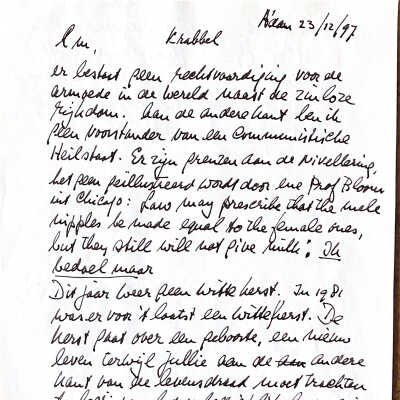 A'dam 23/12/97
Krabbel
er bestaat geen rechtvaardiging voor de
armoede in de wereld naast de zinloze
rijkdom. Aan de andere kant ben ik
geen voorstander van een Communistische
Heilstaat. Er zijn grenzen aan de nivellering,
het geen geillustreerd wordt door ene Prof Bloom
uit Chicago: Laws may prescribe that the male
nipples be made equal to the female ones,
but they still will not give milk". Ik
bedoel maar
Dit jaar weer geen witte kerst. In 1981
was er voor 't laatst een witte kerst. De
kerst gaat over een geboorte, een nieuw
leven terwijl jullie aan de aan andere
kant van de levensdraad moet trachten